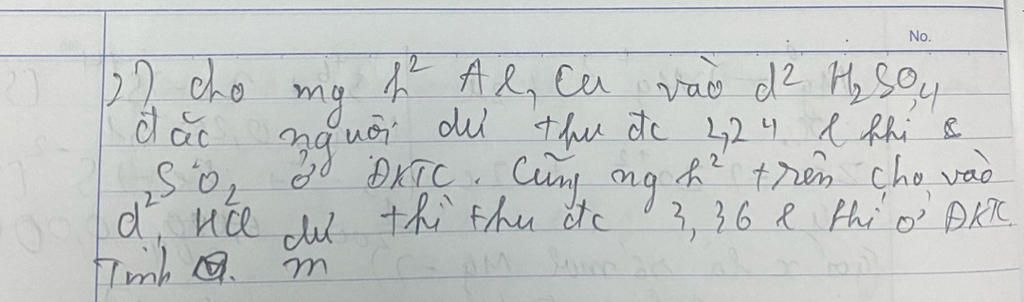 No.
2) cho mg h² Al, Cu vào d² H₂SO₄
đặc nguội dư thu đc 2,24 l khí
SO₂ ở ĐKTC. Cũng mg h² trên cho vào
d² HCl dư thì thu đc 3,36 l khí ở ĐKTC.
Tính m